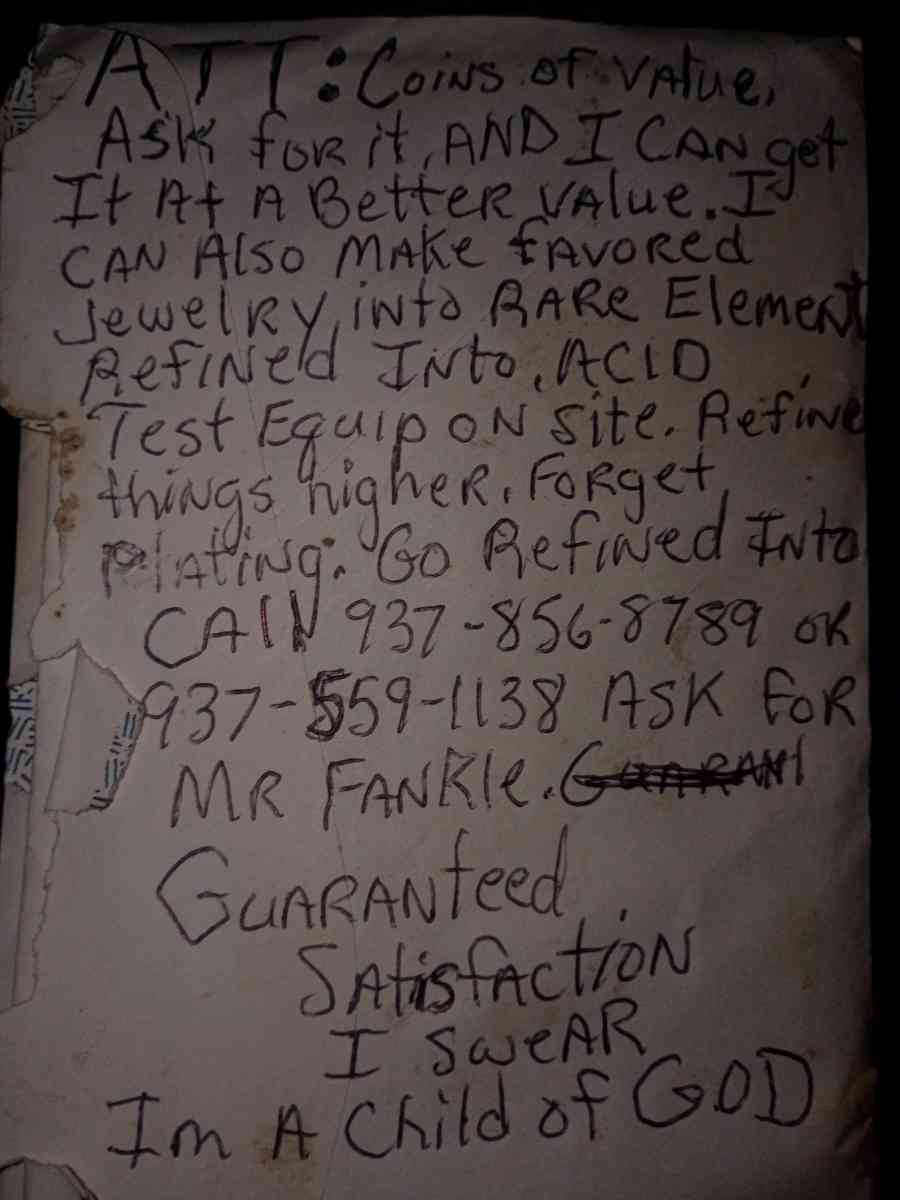 ATT: Coins of VAlue,
ASK foR it, AND I CAN get
It At A BetteR VAlue. I
CAN Also MAKe fAVORed
JewelRy, into RARe Element
RefiNed INto, ACID
Test Equip oN Site. Refine
thiNgs higher. FoRget
PlAtiNg. Go Refined INto
CAll 937-856-8789 oR
937-559-1138 ASK FoR
MR FANKle.
GuARANteed
SAtisfActioN
I SweAR
Im A Child of GOD